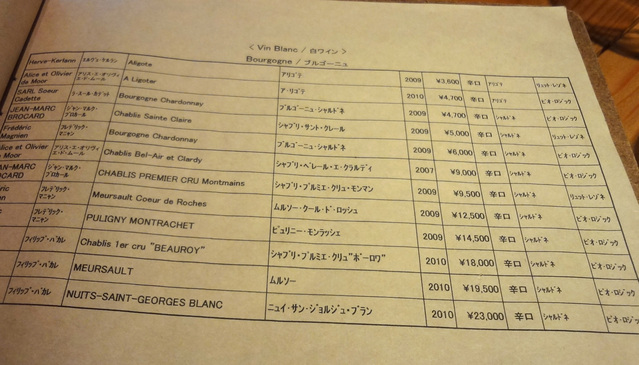 < Vin Blanc / 白ワイン >
Bourgogne / ブルゴーニュ
Herve-Kerlann エルヴェ・ケルラン Aligote アリゴテ 2009 ¥3,600 辛口 アリゴテ リュット・レゾネ
Alice et Olivier de Moor アリス・エ・オリヴィエ・ド・ムール A Ligoter ア・リゴテ 2010 ¥4,700 辛口 アリゴテ ビオ・ロジック
SARL Soeur Cadette Bourgogne Chardonnay ブルゴーニュ・シャルドネ 2009 ¥4,700 辛口 シャルドネ ビオ・ロジック
JEAN-MARC BROCARD ジャン・マルク・ブロカール Chablis Sainte Claire シャブリ・サント・クレール 2009 ¥5,000 辛口 シャルドネ リュット・レゾネ
Frédéric Magnien フレデリック・マニャン Bourgogne Chardonnay ブルゴーニュ・シャルドネ 2009 ¥6,000 辛口 シャルドネ ビオ・ロジック
lice et Olivier de Moor アリス・エ・オリヴィエ・ド・ムール Chablis Bel-Air et Clardy シャブリ・ベレール・エ・クラルディ 2007 ¥9,000 辛口 シャルドネ ビオ・ロジック
AN-MARC OCARD ジャン・マルク・ブロカール CHABLIS PREMIER CRU Montmains シャブリ・プルミエ・クリュ・モンマン 2009 ¥9,500 辛口 シャルドネ リュット・レゾネ
ric nien フレデリック・マニャン Meursault Coeur de Roches ムルソー・クール・ド・ロッシュ 2009 ¥12,500 辛口 シャルドネ ビオ・ロジック
フィリップ・パカレ PULIGNY MONTRACHET ピュリニー・モンラッシェ 2009 ¥14,500 辛口 シャルドネ ビオ・ロジック
フィリップ・パカレ Chablis 1er cru "BEAUROY" シャブリ・プルミエ・クリュ"ボーロワ" 2010 ¥18,000 辛口 シャルドネ ビオ・ロジック
フィリップ・パカレ MEURSAULT ムルソー 2010 ¥19,500 辛口 シャルドネ ビオ・ロジック
フィリップ・パカレ NUITS-SAINT-GEORGES BLANC ニュイ・サン・ジョルジュ・ブラン 2010 ¥23,000 辛口 シャルドネ ビオ・ロジック